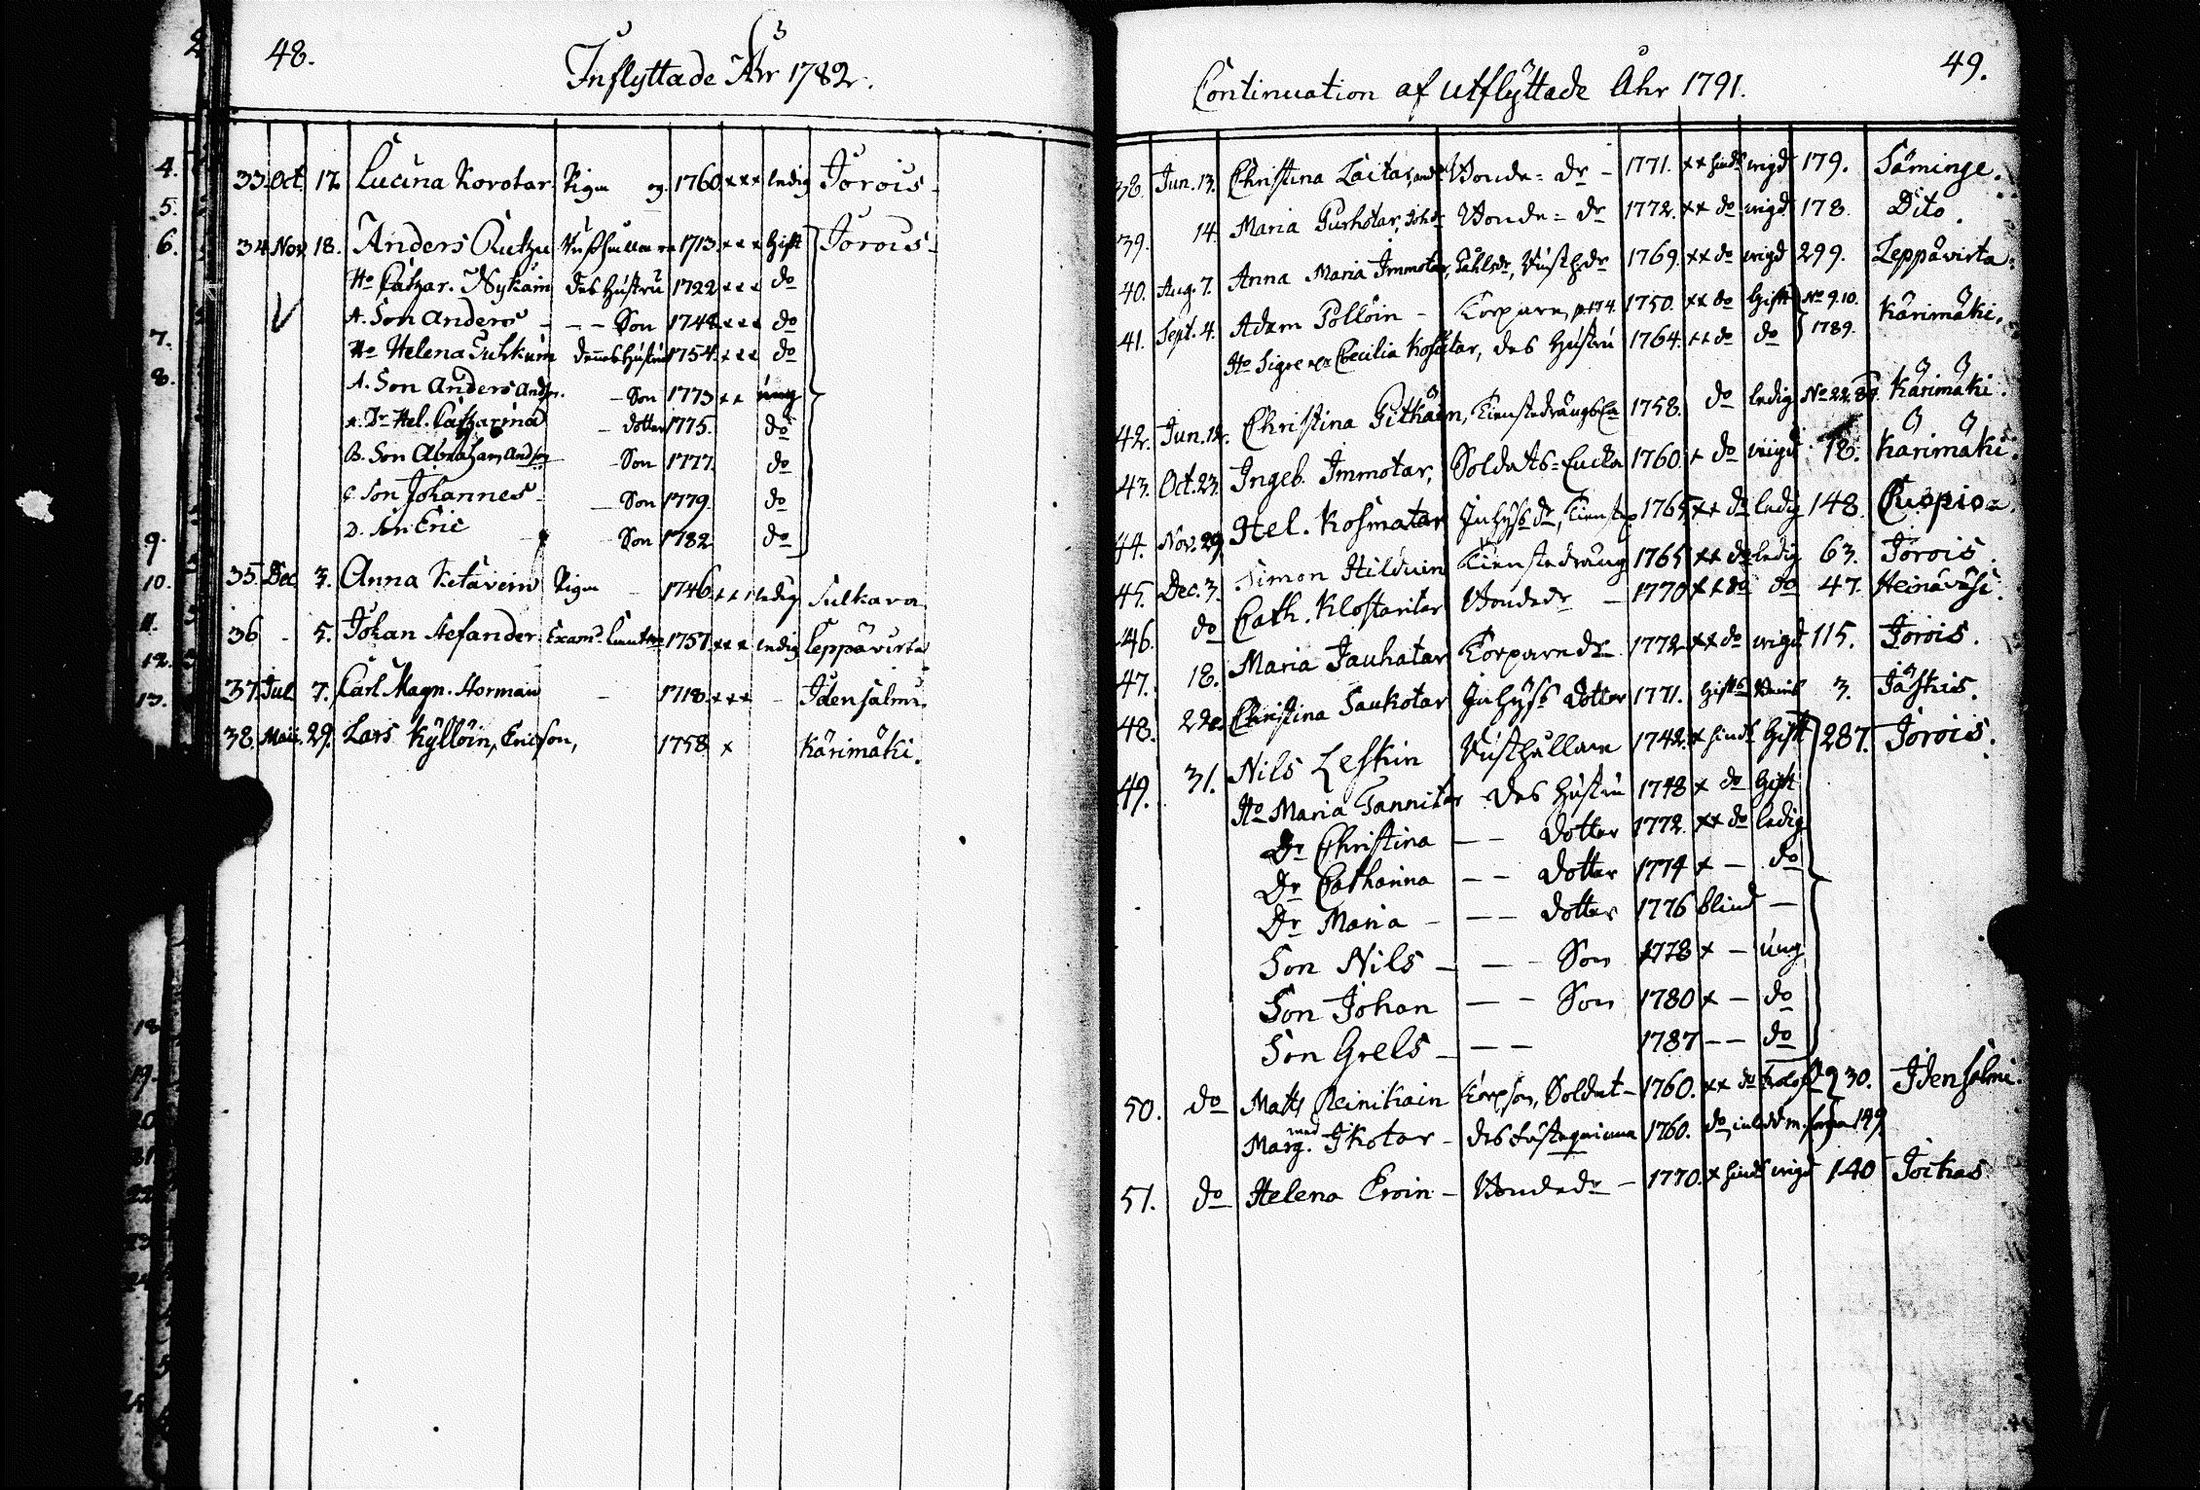 48.
Inflyttade Åhr 1782.
33. Oct. 17. Lucina Korotar Pigan 1760 xxx ledig Jorois
34. Nov. 18. Anders Rusthållaren 1713. xxx Gift Jorois
Ho Cathar. Nykäin des Hustru 1722 xxx do
A. Son Anders — — Son 1748 xxx do
Ho Helena dennes Hustru 1754. xxx do
A. Son Anders Ands. — Son 1773 xx ung
A. Dr Hel. Catharina — dotter 1775. do
B. Son Abraham Andson — Son 1777. do
C. Son Johannes — Son 1779. do
D. Son Eric — Son 1782 do
35. Dec. 3. Anna Pigan — 1746. xxx ledig Sulkava
36 - 5. Johan 1757. xxx ledig Leppävirta
37. Jul. 7. Carl Magn. Horman — 1718. xxx - Idensalmi
38. Maii. 29. Lars Kyllöin, Ericson, 1758. x Kärimäki.
49.
Continuation af utflyttade Åhr 1791.
38. Jun. 13. Christina Laitar, Bonde-dr — 1771. xx vigd 179. Säminge.
39. 14. Maria Purhotar, Joh. dr Bonde-dr 1772. xx do vigd 178. Dito.
40. Aug. 7. Anna Maria Immotar, Påhlsdr, 1769. xx do vigd 299. Leppävirta.
41. Sept. 4. Adam Pollöin — Torparen, p. 174. 1750. xx do Gift No 9.10. Kärimäki.
Ho Caecilia des Hustru 1764. xx do do 1789.
42. Jun. 12. Christina Pitkäin, 1758. do ledig No 22. Kärimäki.
43. Oct. 23. Ingeb. Immotar, Soldats-Enckan 1760. x do vigd 18. Kärimäki.
44. Nov. 29. Hel. Kosmatar Inhyses dr, 1765. xx do ledig 148. Cuopio.
45. Dec. 3. Simon Hilduin Tienstedräng 1765 xx do ledig 63. Jorois.
46. do Cath. Klostaritar Bondedr — 1770 xx do do 47. Heinävesi.
47. 18. Maria Jauhotar Torparedr 1772 xx do vigd 115. Jorois.
48. Christina Saukotar Inhyses dotter 1771. 3. Jäskis.
49. 31. Nils Leskin Rusthållare 1742. x Gift 287. Jorois.
Ho Maria Tannitar des Hustru 1748 x do Gift
Dr Christina — — dotter 1772. xx do ledig
Dr Catharina — — dotter 1774 x — do
Dr Maria — — — dotter 1776 blind —
Son Nils — — — Son 1778 x — ung
Son Johan — — Son 1780 x — do
Son Grels — — — 1787 — — do
50. do Matts Reinikain Torpson, Soldat — 1760. xx do 30. Idensalmi.
med
Marg. Ikotar — des fästeqvinna 1760. do
51. do Helena Eroin — Bondedr — 1770. x vigd 140 Joikas